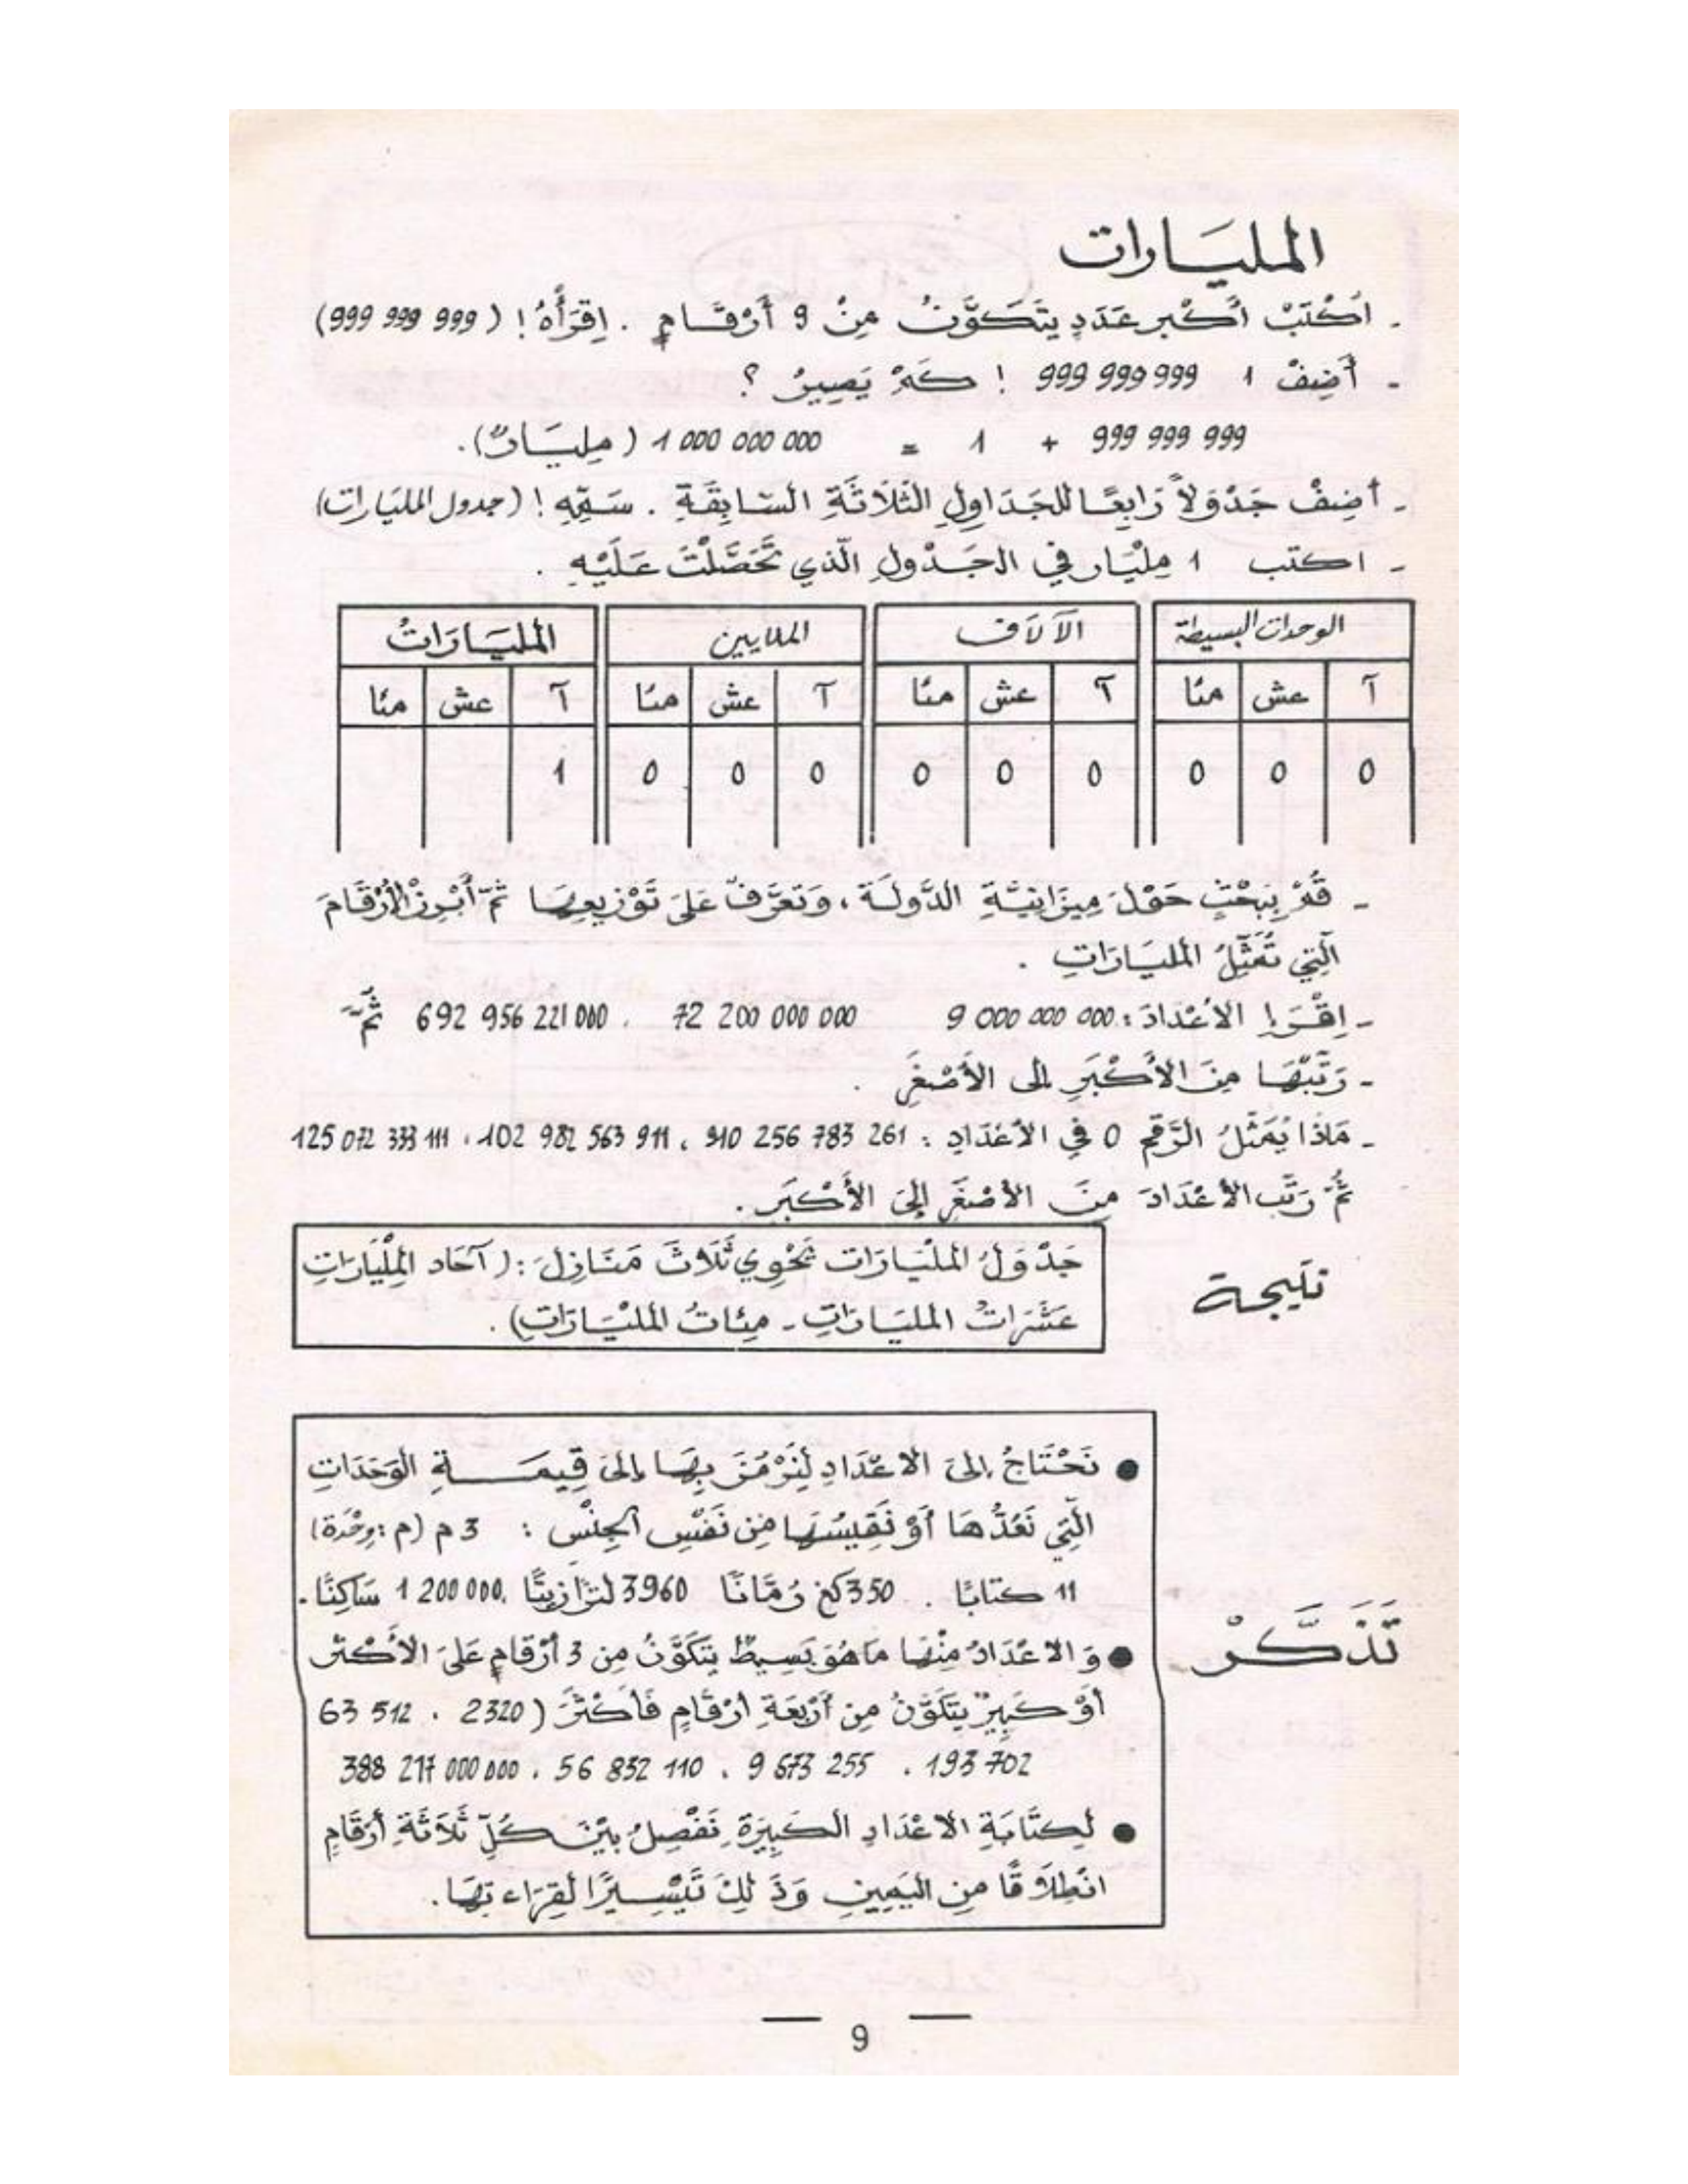 المليَارات
- اُكْتُبْ أكْبر عَدَدٍ يتَكَوَّنُ مِنْ 9 أَرْقَامٍ . اِقْرَأْهُ ! ( 999 999 999)
- أَضِفْ 1 999 999 999 ! كَمْ يَصِيرُ ؟
999 999 999 + 1 = 1 000 000 000 ( مِليَارٌ).
- أضِفْ جَدْوَلاً رَابِعًا للجَدَاوِلِ الثَلَاثَةِ السَّابِقَةِ . سَمِّهِ ! (جدول المليَارات)
- اكتب 1 مِلْيَار في الجَدْولِ الّذي تَحَصَّلْتَ عَلَيْهِ .
الوحدات البسيطة | الآلَاف | الملايين | المليَارَاتُ
آ | عش | مئا | آ | عش | مئا | آ | عش | مئا | آ | عش | مئا
0 | 0 | 0 | 0 | 0 | 0 | 0 | 0 | 0 | 1
- قُمْ بِبَحْثٍ حَوْلَ مِيزَانِيَّةِ الدَّولَة ، وَتعَرَّفْ عَلَى تَوْزِيعِهَا ثمّ أَبْرِزْ الأَرْقَامَ
الّتِي تُمَثِّلُ المليَارَاتِ .
- اِقْرَإ الأعْدَادَ : 9 000 000 000 72 200 000 000 . 692 956 221 000 ثُمَّ
- رَتّبْهَا مِنَ الأَكْبَرِ إلى الأَصْغَرِ .
- مَاذَا يُمَثّلُ الرَّقمُ 0 في الأعْدَادِ : 910 256 783 261 ، 102 982 563 911 ، 125 072 333 111
ثُمَّ رَتّب الأعْدَادَ مِنَ الأصْغَرِ إِلَى الأَكْبَرِ .
نتيجة
جَدْوَلُ المِلْيَارَات تَحْوِي ثَلَاثَ مَنَازِلَ : ( آحَاد المِلْيَارَاتِ
عَشَرَاتُ المليَارَاتِ - مِئَاتُ المِلْيَارَاتِ) .
تَذَكَّرْ
● نَحْتَاجُ إلى الاعْدَادِ لِنَرْمُزَ بِهَا إلى قِيمَةِ الوَحَدَاتِ
الّتِي نَعُدُّهَا أَوْ نَقِيسُهَا مِن نَفْسِ الجِنْس : 3 م (م : وِحْدَة)
11 كتابًا . 350 كغ رُمَّانًا 3960 لترًا زيتًا . 1 200 000 سَاكِنًا .
● وَ الاعْدَادُ مِنْهَا مَا هُوَ بَسِيطٌ يتَكَوَّنُ مِن 3 أرْقامٍ عَلَى الأكْثر
أَوْ كَبِيرٌ يتَكَوَّنُ مِن أَرْبَعَةِ أرْقَامٍ فَأكْثَرَ ( 2320 . 63 512
193 702 . 9 673 255 . 56 832 110 . 388 217 000 000
● لِكِتَابَةِ الاعْدَادِ الكَبِيرَةِ نَفْصِلُ بيْنَ كُلِّ ثَلَاثَةِ أرْقَامٍ
انْطِلَاقًا مِن اليَمِينِ وَذَلِكَ تَيْسِيرًا لقِرَاءَتِهَا .
9